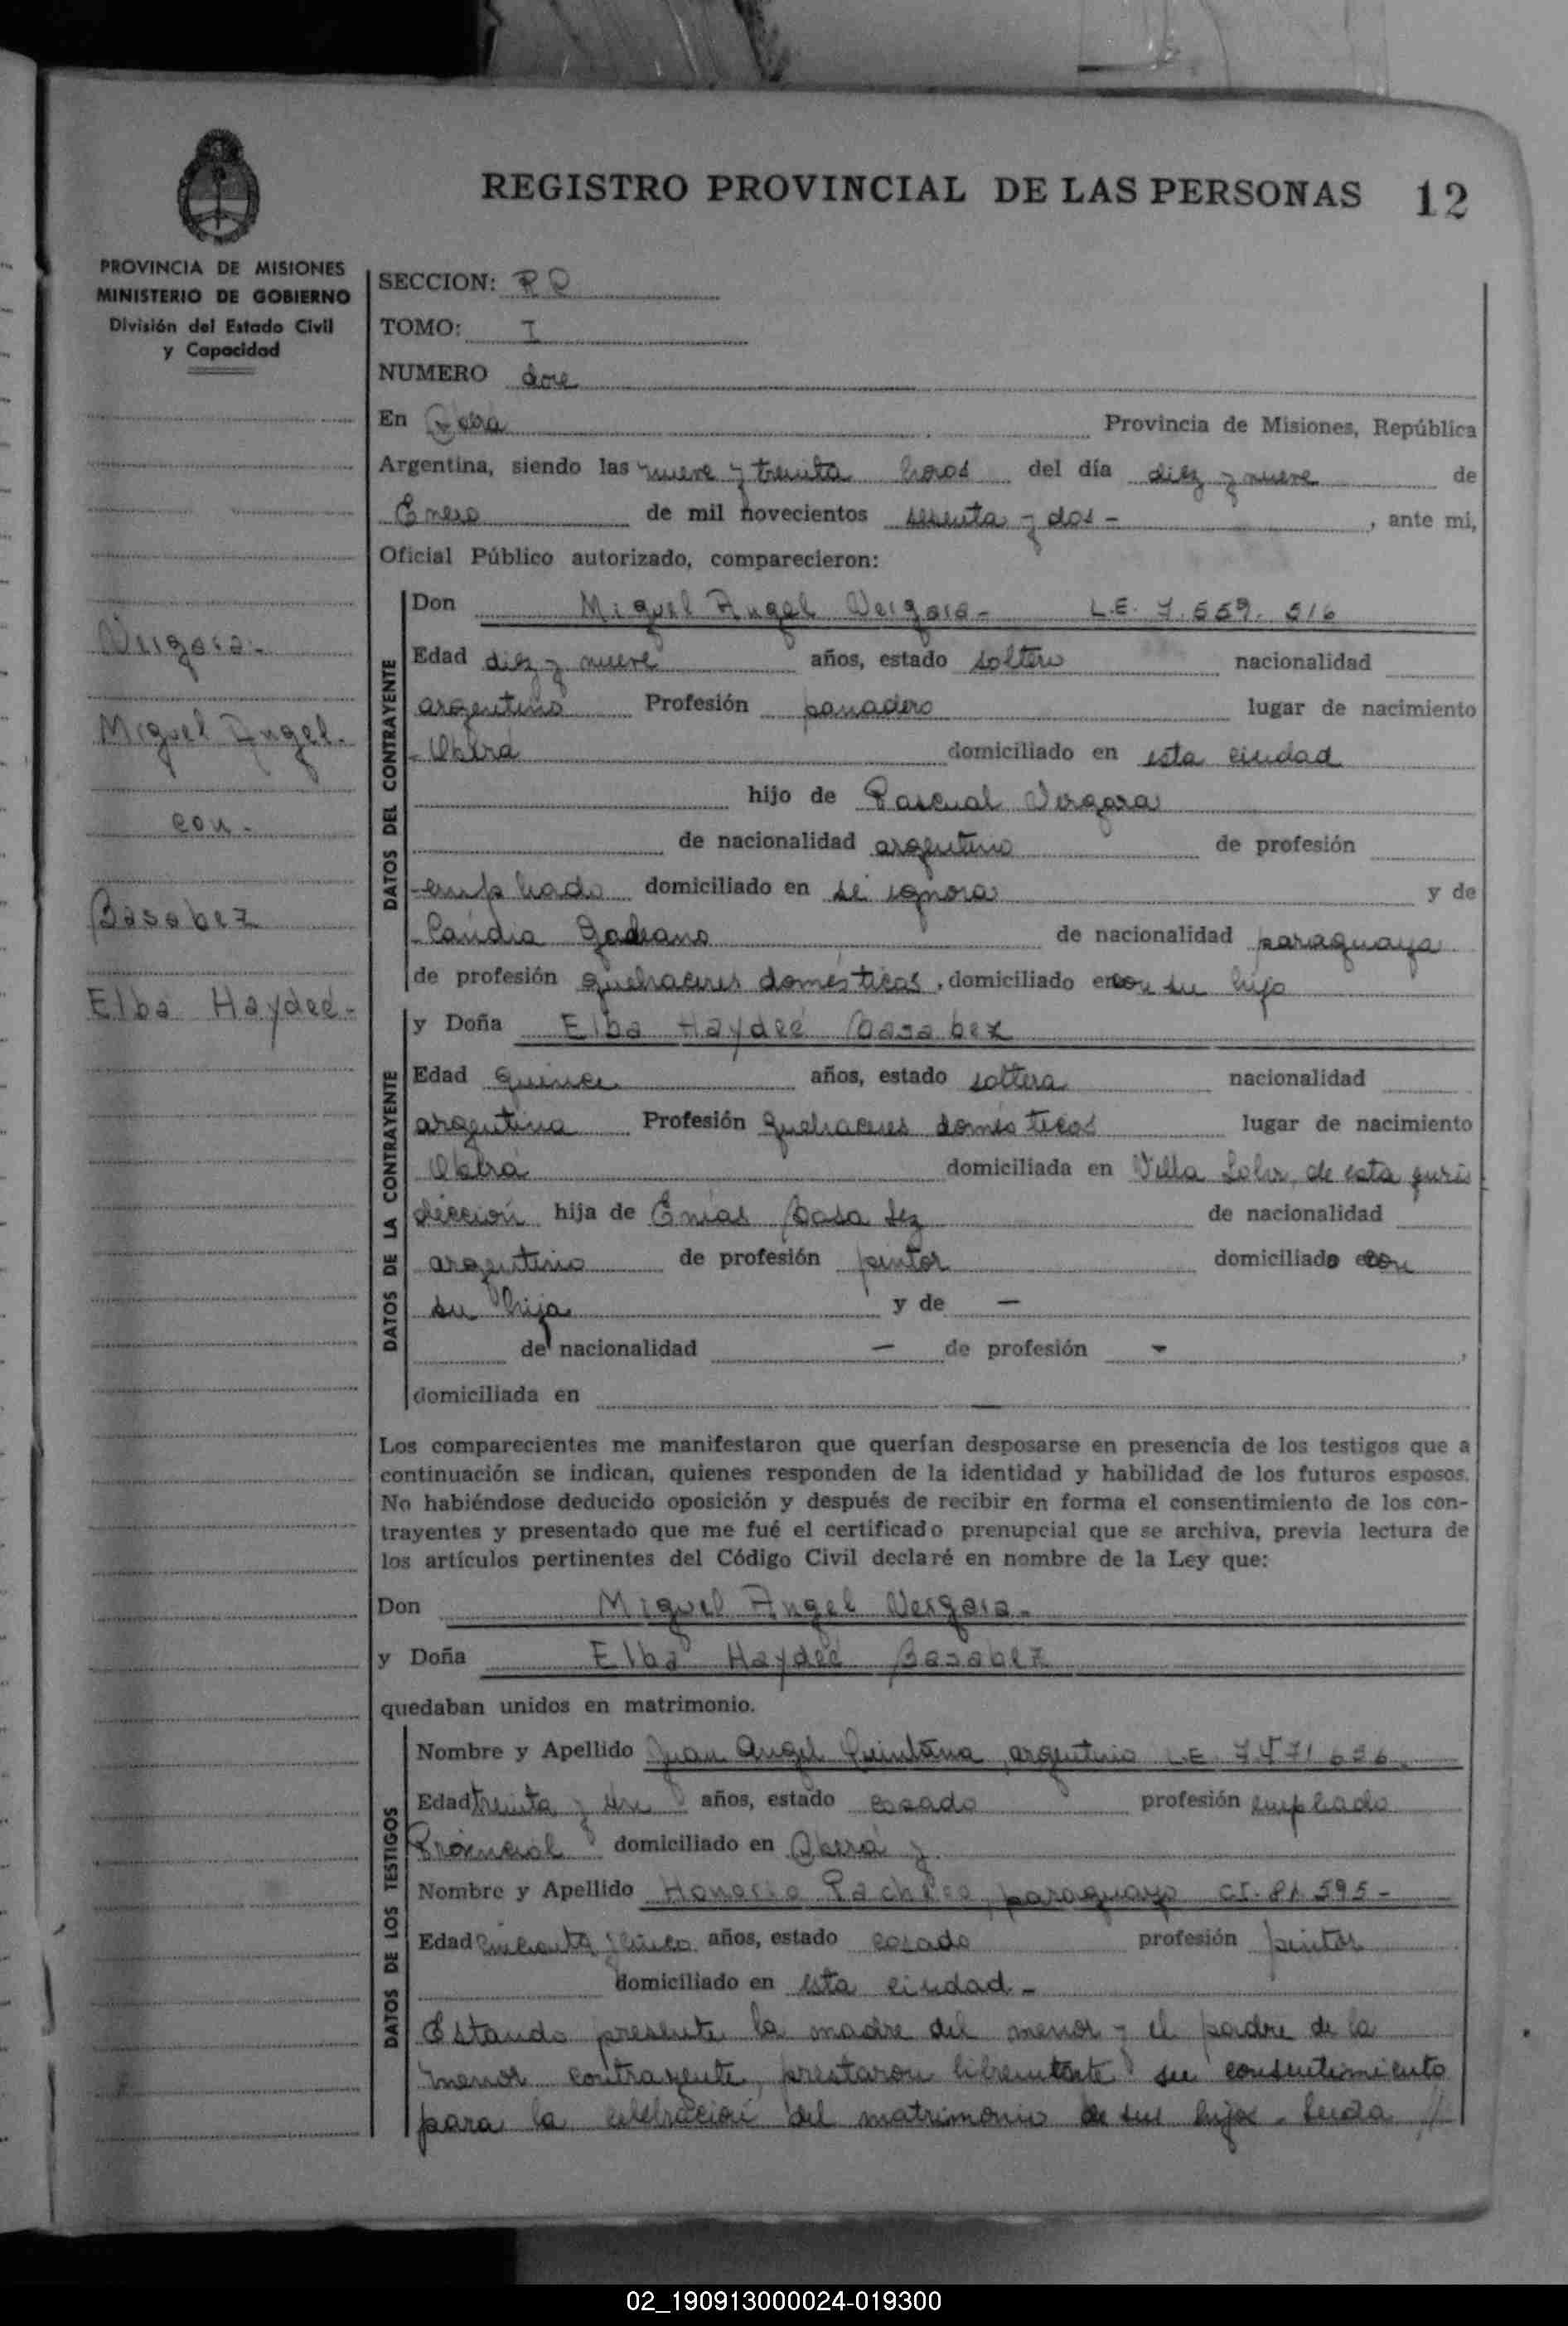 REGISTRO PROVINCIAL DE LAS PERSONAS 12
PROVINCIA DE MISIONES
MINISTERIO DE GOBIERNO
División del Estado Civil
y Capacidad
Vergara.
Miguel Angel.
con.
Basabez
Elba Haydeé.
SECCION: R Q
TOMO: I
NUMERO doce
En Oberá Provincia de Misiones, República
Argentina, siendo las nueve y treinta horas del día diez y nueve de
Enero de mil novecientos sesenta y dos - , ante mi,
Oficial Público autorizado, comparecieron:
DATOS DEL CONTRAYENTE
Don Miguel Angel Vergara - L.E. 7.559.516
Edad diez y nueve años, estado soltero nacionalidad
argentino Profesión panadero lugar de nacimiento
- Oberá domiciliado en esta ciudad
hijo de Pascual Vergara
de nacionalidad argentino de profesión
empleado domiciliado en se ignora y de
de nacionalidad paraguaya
de profesión quehaceres domésticos, domiciliado en con su hijo
DATOS DE LA CONTRAYENTE
y Doña Elba Haydeé Basabez
Edad quince años, estado soltera nacionalidad
argentina Profesión quehaceres domésticos lugar de nacimiento
Oberá domiciliada en Villa de esta juris
dicción hija de Basabez de nacionalidad
argentino de profesión pintor domiciliado con
su hija y de —
de nacionalidad — de profesión - ,
domiciliada en —
Los comparecientes me manifestaron que querían desposarse en presencia de los testigos que a
continuación se indican, quienes responden de la identidad y habilidad de los futuros esposos.
No habiéndose deducido oposición y después de recibir en forma el consentimiento de los con-
trayentes y presentado que me fué el certificado prenupcial que se archiva, previa lectura de
los artículos pertinentes del Código Civil declaré en nombre de la Ley que:
Don Miguel Angel Vergara -
y Doña Elba Haydeé Basabez
quedaban unidos en matrimonio.
DATOS DE LOS TESTIGOS
Nombre y Apellido Juan Angel Quintana, argentino L.E.
Edad treinta y un años, estado casado profesión empleado
Provincial domiciliado en Oberá y
Nombre y Apellido Honorio Pacheco, paraguayo C.I. 81.595 -
Edad cincuenta y cinco años, estado casado profesión pintor
domiciliado en esta ciudad -
Estando presente la madre del menor y el padre de la
menor contrayente, prestaron libremente su consentimiento
para la celebración del matrimonio de sus hijos. Leida //
02_190913000024-019300